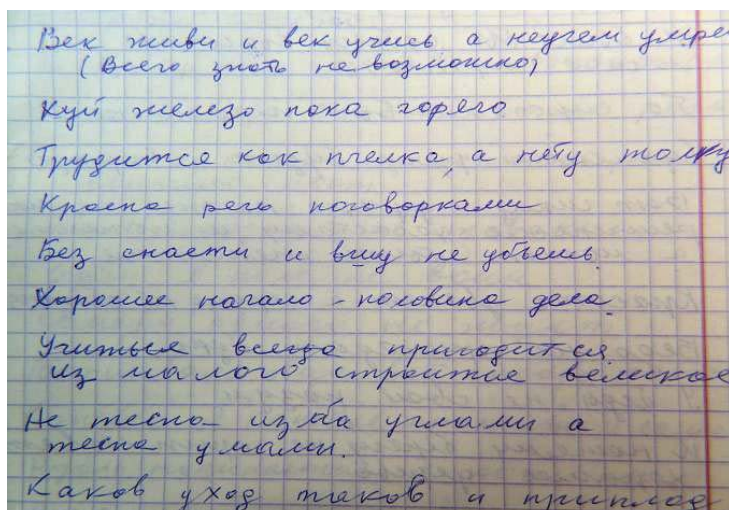 Век живи и век учись а неучем умре
(Всего знать не возможно)
Куй железо пока горячо
Трудится как пчелка, а нету толку
Красна речь поговорками
Без снасти и вшу не убьешь.
Хорошее начало - половина дела.
Учиться всегда пригодится.
из малого строиться великое
Не тесна изба углами а
тесна умами.
Каков уход таков и приплод